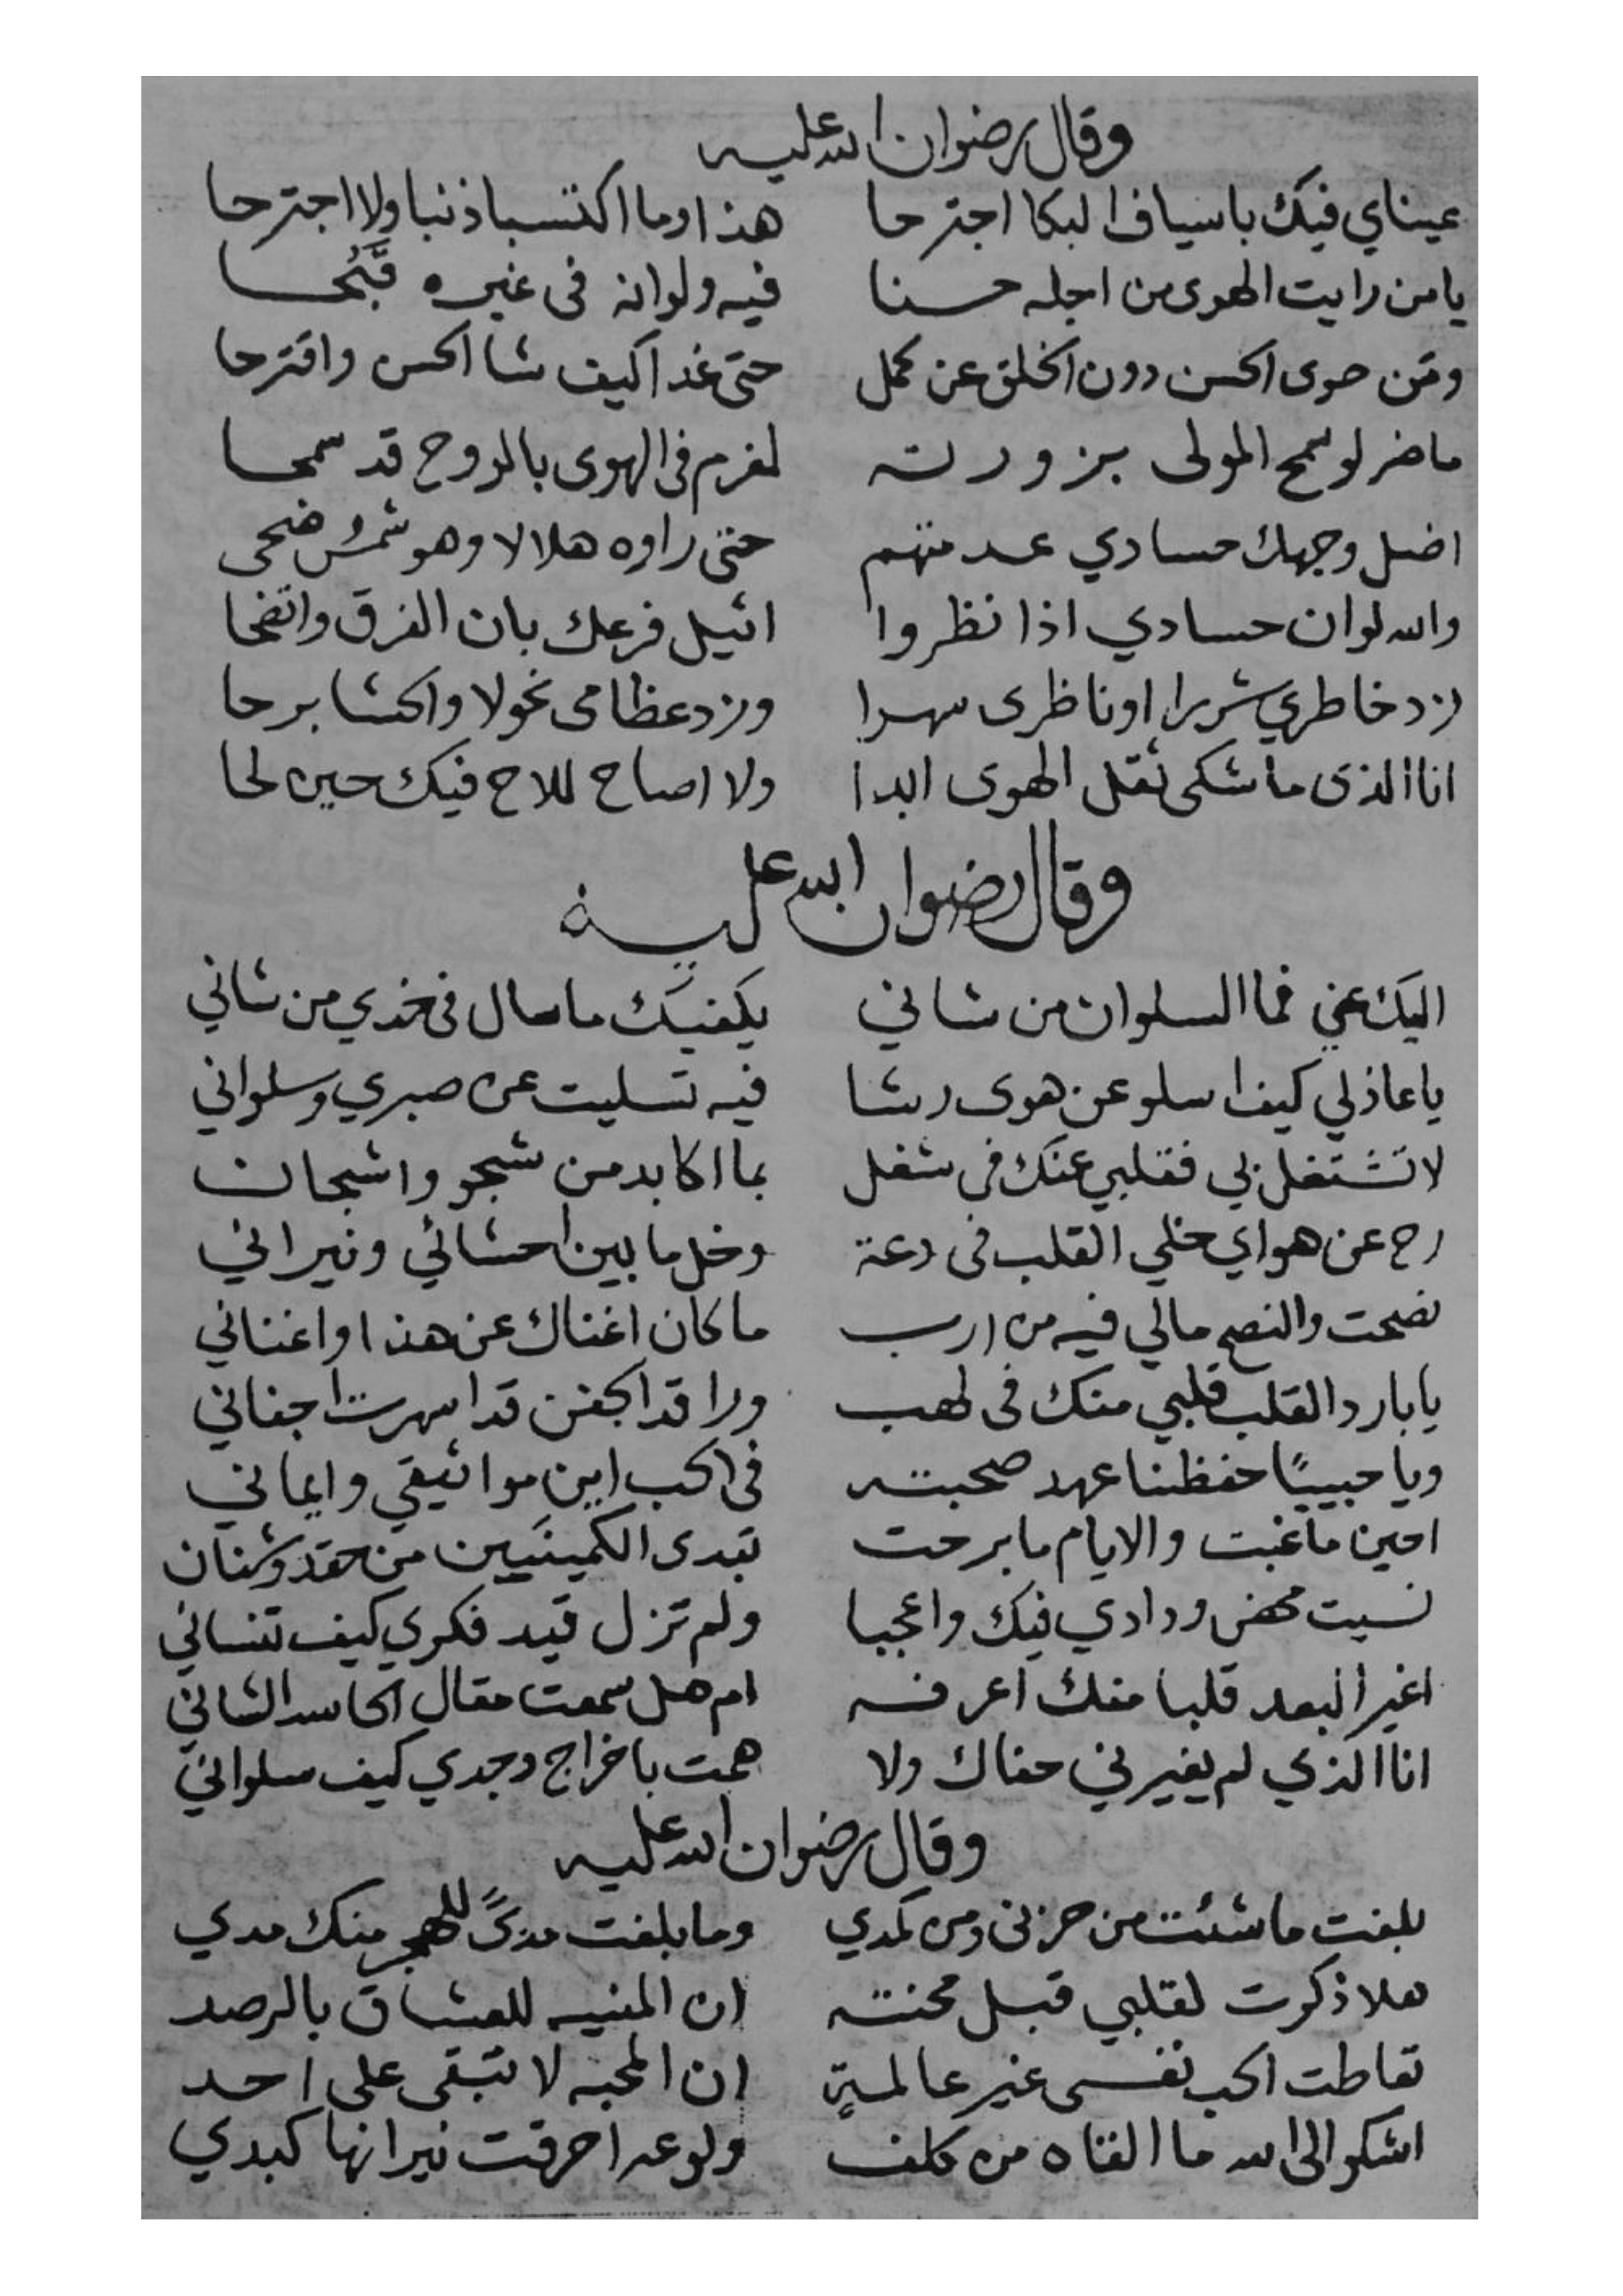 وقال رضوان الله عليه
عيناي فيك باسياف البكا اجترحا هذا وما اكتسبا ذنبا ولا اجترحا
يا من رايت الهوى من اجله حسنا فيه ولو انه فى غيره قَبُحا
ومَن حوى الحسن دون الخلق عن كمل حتى غدا كيف شا الحسن واقترحا
ما ضر لو سمح المولى بزورته لمغرم فى الهوى بالروح قد سمحا
اضل وجهك حسادي عدمتهم حتى راوه هلالا وهو شمس ضحى
والله لو ان حسادي اذا نظروا اثيل فرعك بان الفرق واتضحا
زد خاطري شررا او ناظرى سهرا وزد عظامى نحولا والحشا برحا
انا الذى ما شكى ثقل الهوى ابدا ولا اصاح للاح فيك حين لحا
وقال رضوان الله عليه
اليك عني فما السلوان من شاني يكفيك ما سال فى خدي من شاني
يا عاذلي كيف اسلو عن هوى رشا فيه تسليت عن صبري وسلواني
لا تشتغل بي فقلبي عنك فى شغل بما اكابد من شجو واشجان
رح عن هواي خلي القلب فى دعة وخل ما بين احشائي ونيراني
نصحت والنصح مالي فيه من ارب ما كان اغناك عن هذا واغناني
يا بارد القلب قلبي منك فى لهب وراقد الجفن قد اسهرت اجفاني
ويا حبيبًا حفظنا عهد صحبته فى الحب اين مواثيقي وايماني
احين ما غبت والايام ما برحت تبدى الكمينين من حقد وشنان
نسيت محض ودادي فيك واعجبا ولم تزل قيد فكري كيف تنساني
اغير البعد قلبا منك اعرفه ام هل سمعت مقال الحاسد الشاني
انا الذي لم يغيرني جفاك ولا همت باخراج وجدي كيف سلواني
وقال رضوان الله عليه
بلغت ما شئت من حزنى ومن كمدي وما بلغت مدىً للهجر منك مدي
هلا ذكرت لقلبي قبل محنته ان المنيه للعشاق بالرصد
تعاطت الحب نفسى غير عالمةٍ ان المحبه لا تبقى على احد
اشكو الى الله ما القاه من كلف ولوعه احرقت نيرانها كبدي